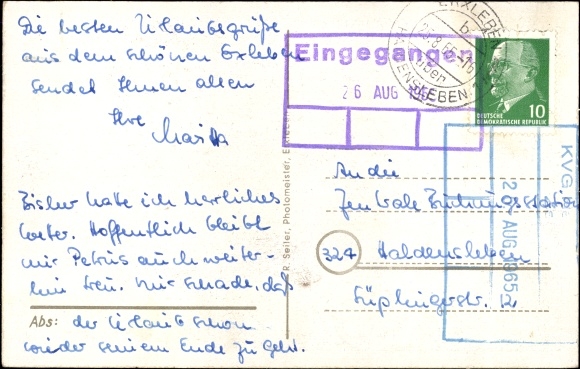 Die besten Urlaubsgrüße
aus dem schönen Erxleben
sendet Ihnen allen
Ihre
Bisher hatte ich herrliches
Wetter. Hoffentlich bleibt
mir Petrus auch weiter-
hin treu. Nur schade, daß
Abs: der Urlaub schon
wieder seinem Ende zu geht.
R. Seiler, Photomeister, Erxleben
Eingegangen
26. AUG. 1965
ERXLEBEN
b
HALDENSLEBEN
10
DEUTSCHE
DEMOKRATISCHE REPUBLIK
An die
Zentrale Buchungsstation
324 Haldensleben
Süplingerstr. 12
KVG
AUG. 1965